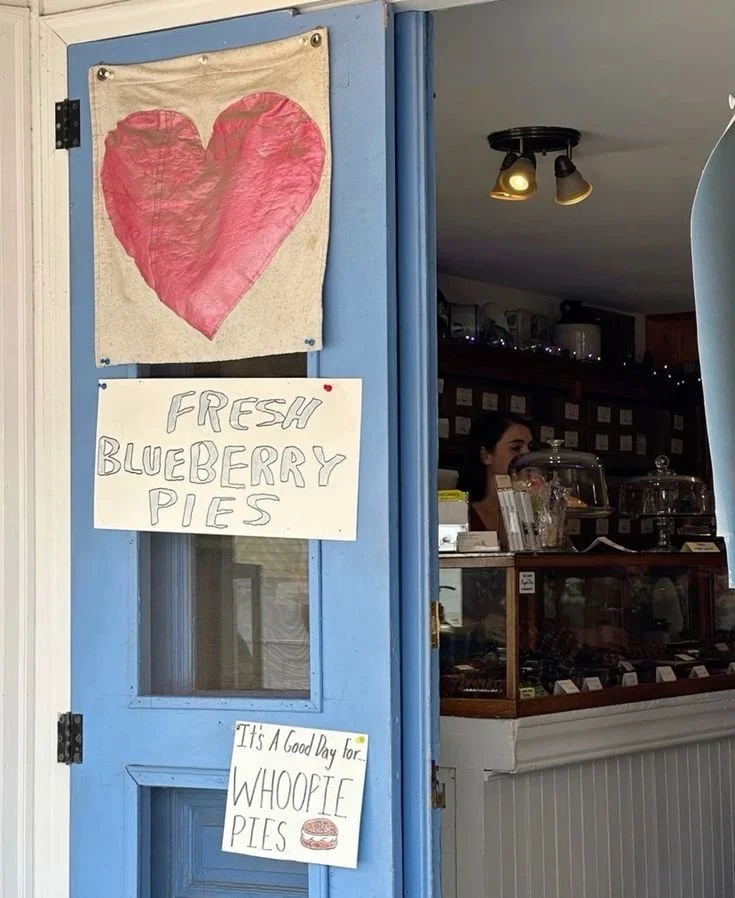 FRESH
BLUEBERRY
PIES
It's A Good Day For...
WHOOPIE
PIES